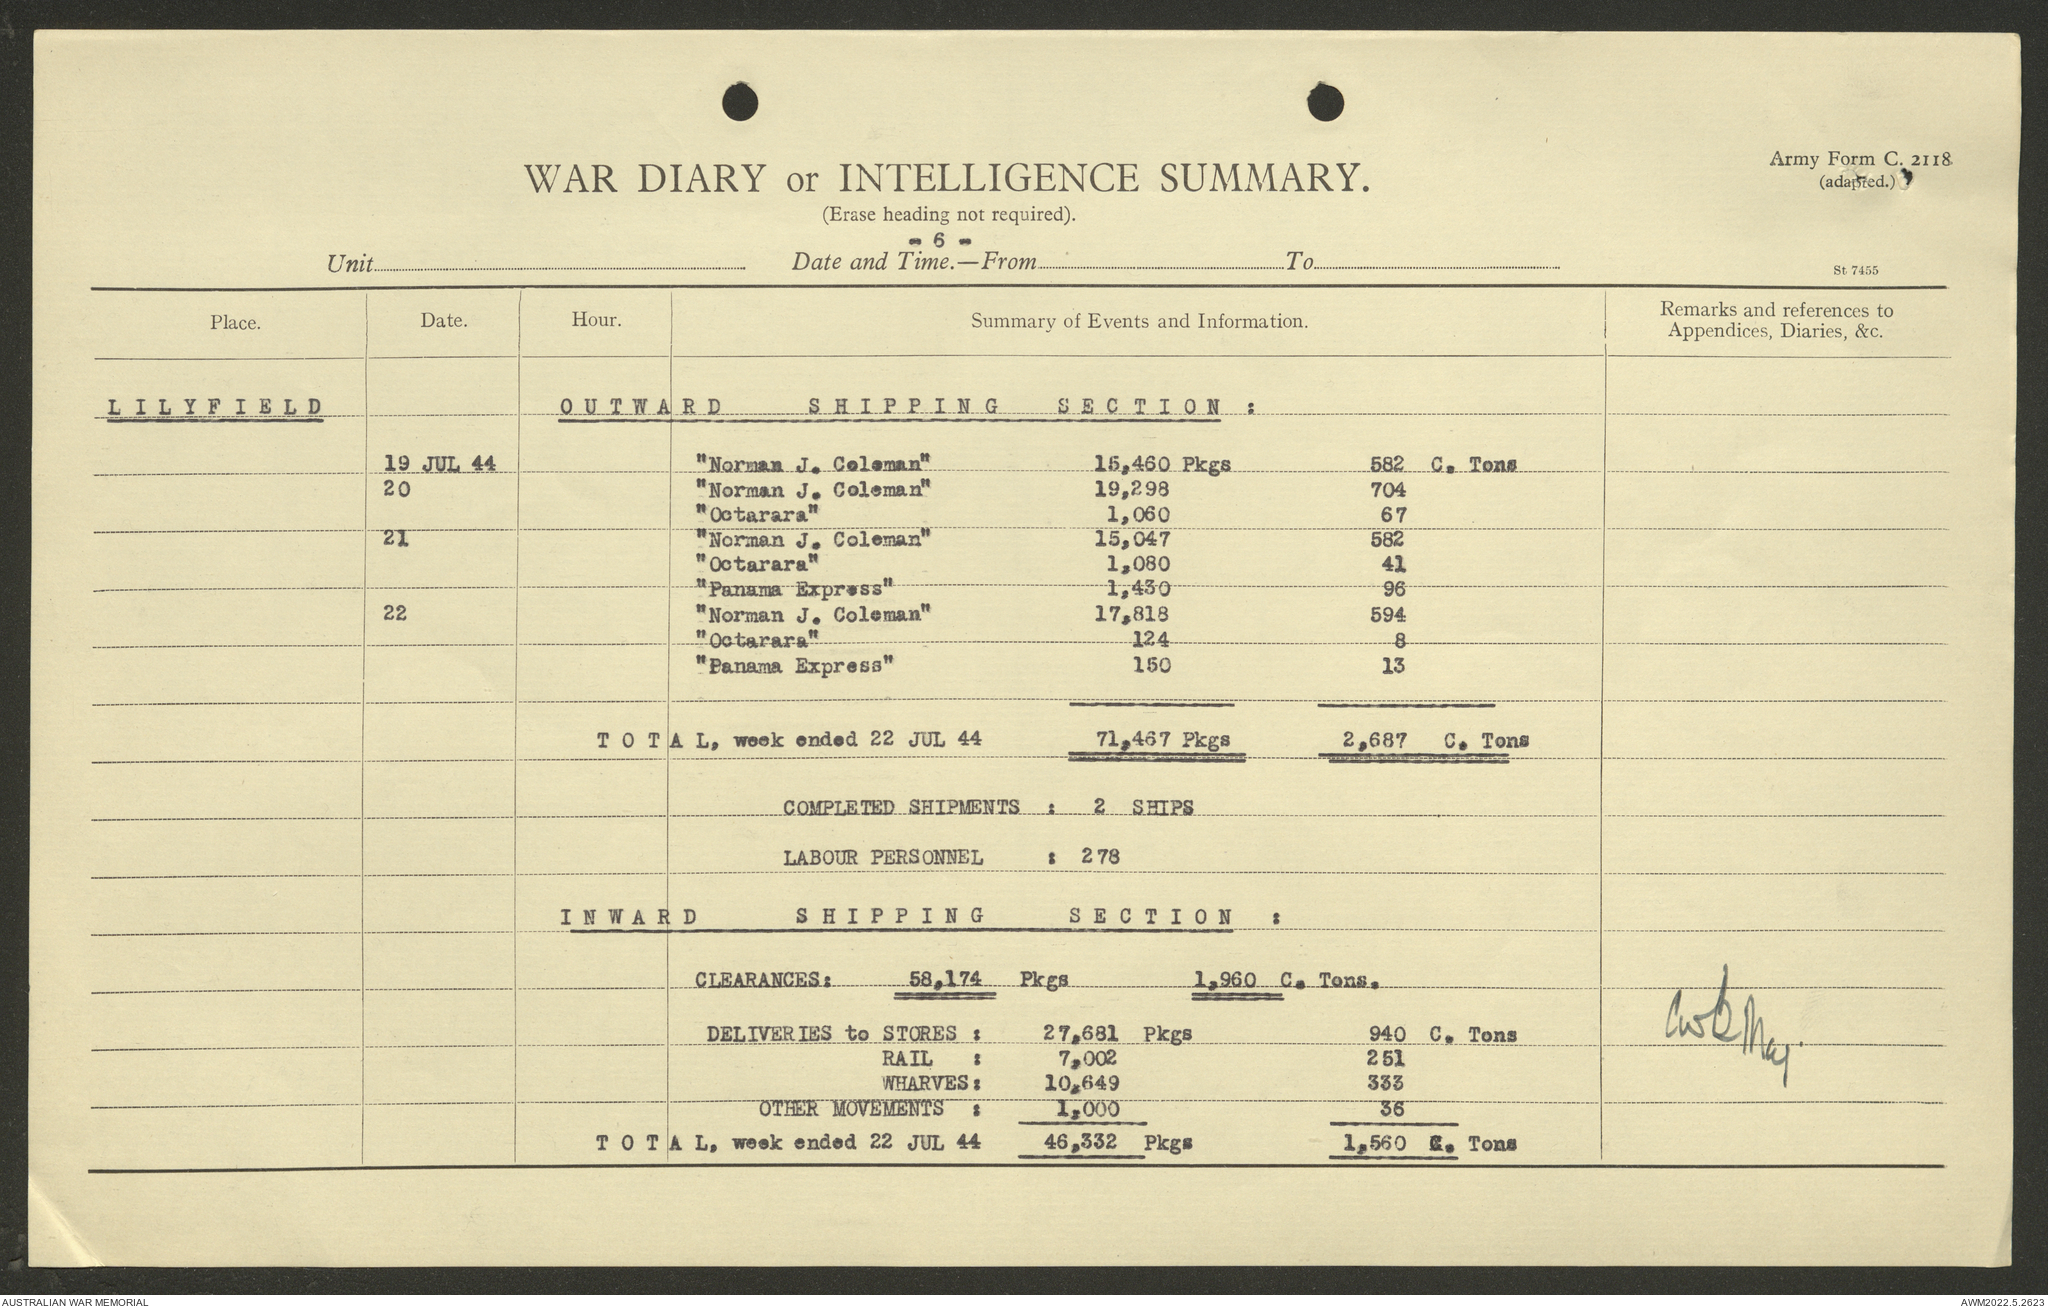 Army Form C. 2118
(adapted.)
WAR DIARY or INTELLIGENCE SUMMARY.
(Erase heading not required).
- 6 -
Unit Date and Time.—From To
St 7455
Place. Date. Hour. Summary of Events and Information. Remarks and references to
Appendices, Diaries, &c.
LILYFIELD OUTWARD SHIPPING SECTION :
19 JUL 44 "Norman J. Coleman" 15,460 Pkgs 582 C. Tons
20 "Norman J. Coleman" 19,298 704
"Octarara" 1,060 67
21 "Norman J. Coleman" 15,047 582
"Octarara" 1,080 41
"Panama Express" 1,430 96
22 "Norman J. Coleman" 17,818 594
"Octarara" 124 8
"Panama Express" 150 13
TOTAL, week ended 22 JUL 44 71,467 Pkgs 2,687 C. Tons
COMPLETED SHIPMENTS : 2 SHIPS
LABOUR PERSONNEL : 278
INWARD SHIPPING SECTION :
CLEARANCES: 58,174 Pkgs 1,960 C. Tons.
DELIVERIES to STORES : 27,681 Pkgs 940 C. Tons
RAIL : 7,002 251
WHARVES: 10,649 333
OTHER MOVEMENTS : 1,000 36
TOTAL, week ended 22 JUL 44 46,332 Pkgs 1,560 C. Tons
Maj.
AUSTRALIAN WAR MEMORIAL AWM2022.5.2623